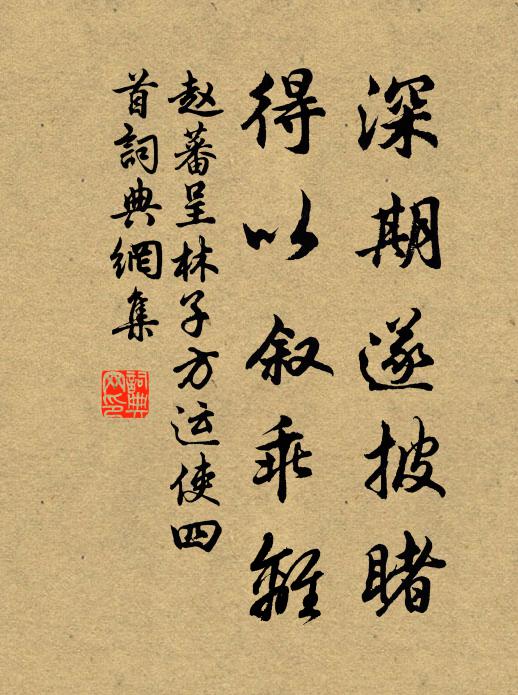 深期遂披睹
得以叙乖離
赵蕃呈林子方运使四
首詞典網集
詞典
网印